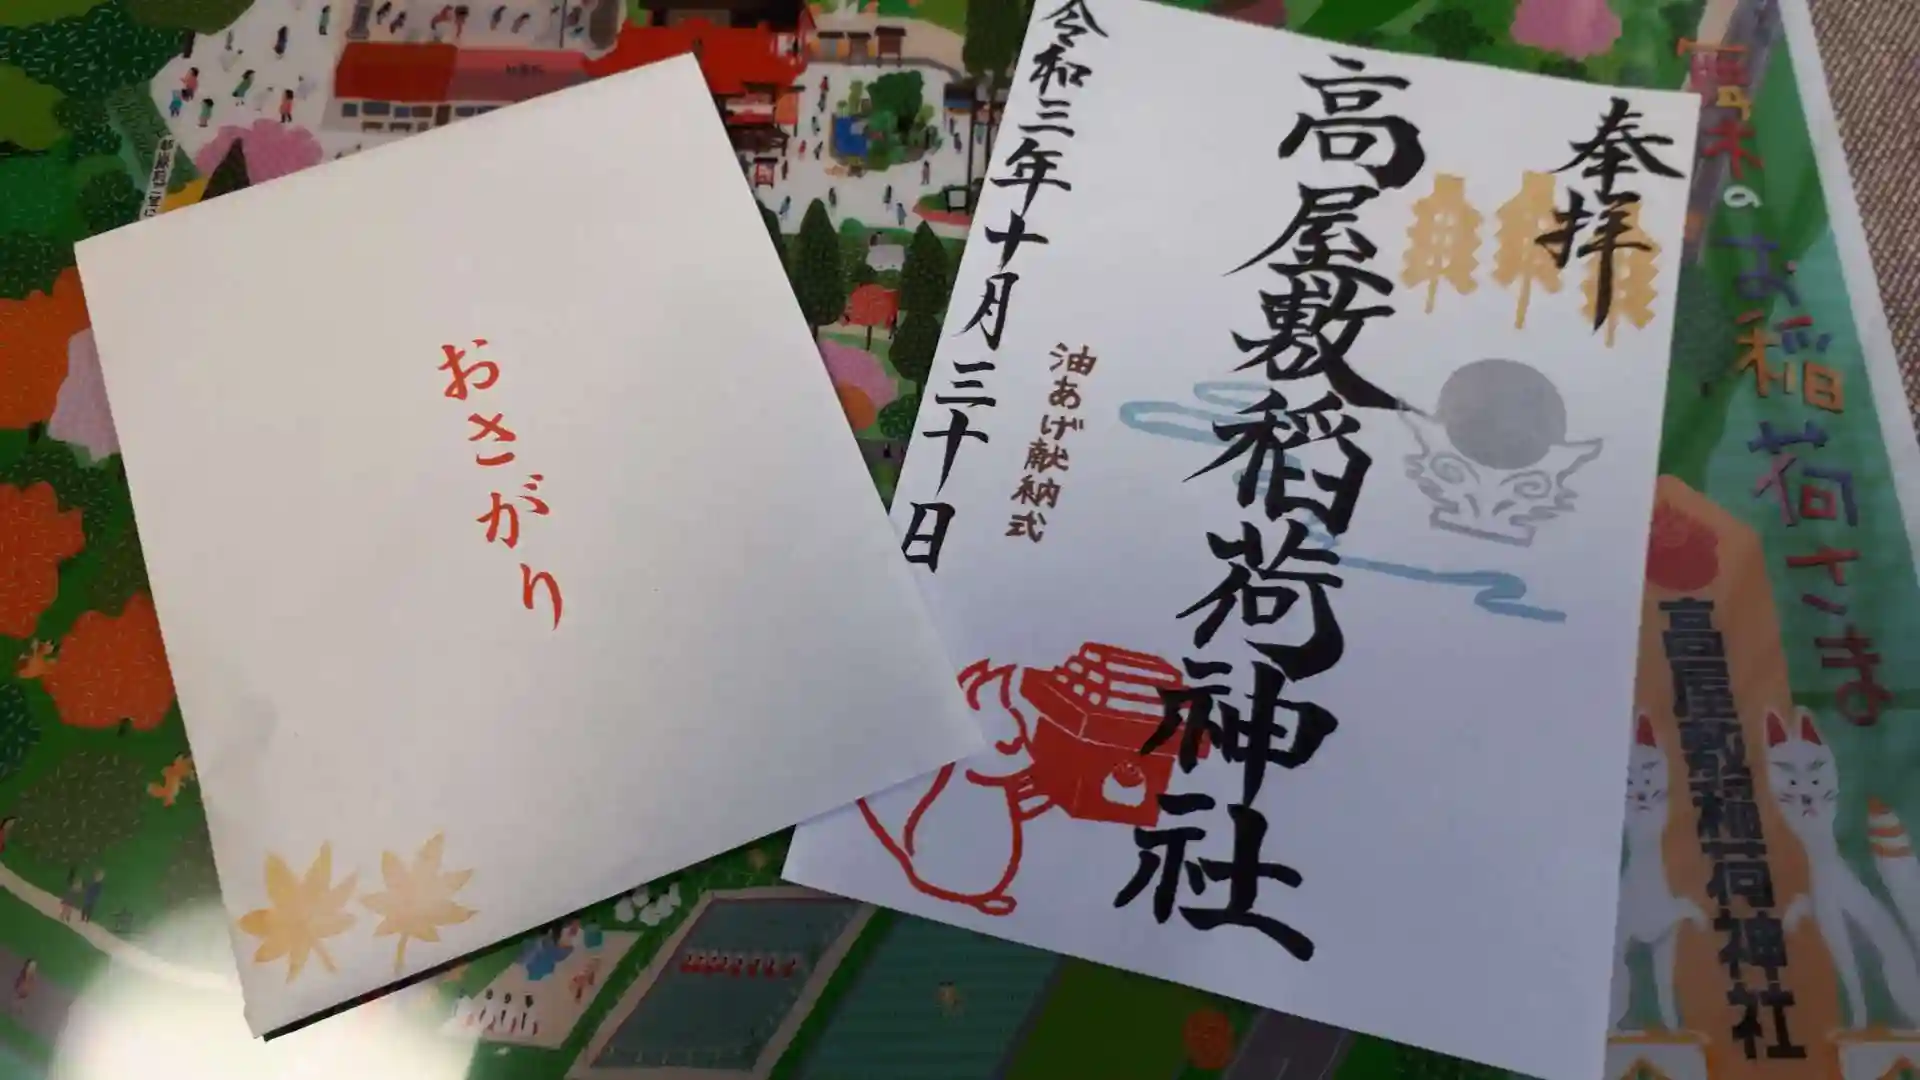 おさがり
奉拝
高屋敷稲荷神社
油あげ献納式
令和三年十月三十日
お稲荷さま
高屋敷稲荷神社